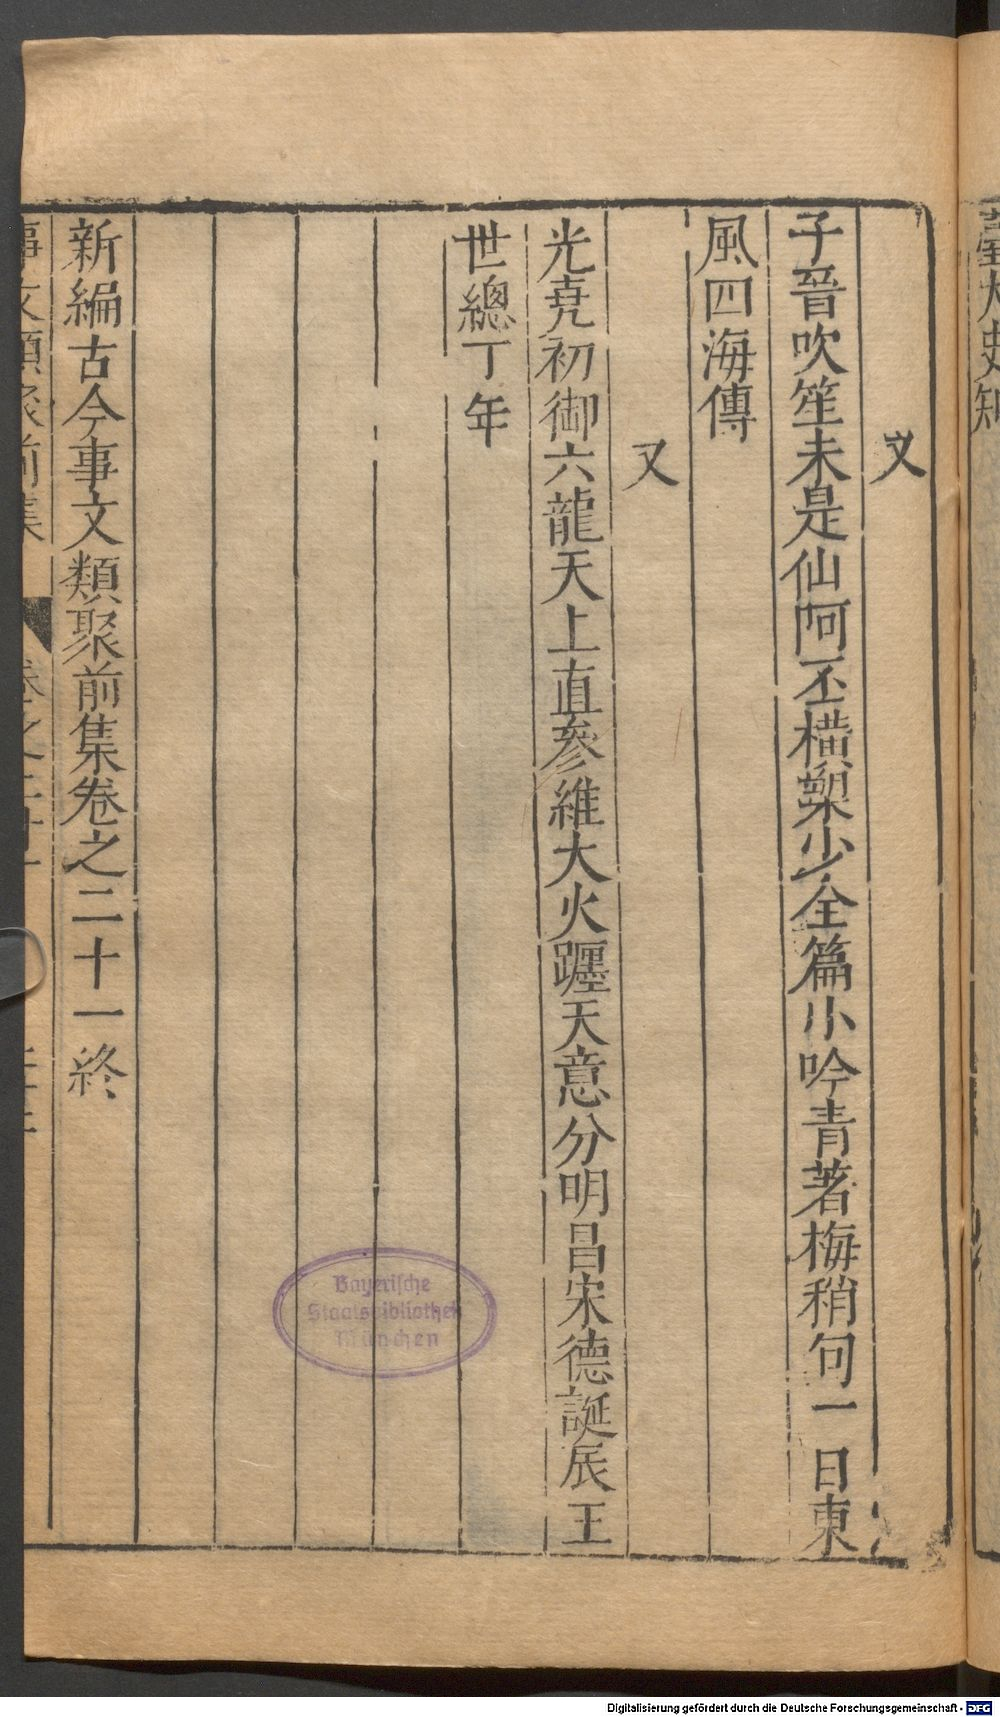 又
子晉吹笙未是仙呵丕橫槊少全篇小吟青著梅稍句一日東
風四海傳
又
光堯初御六龍天上直參維大火躔天意分明昌宋德誕辰王
世總丁年
新編古今事文類聚前集卷之二十一終
事文類聚前集 卷之二十一
Bayerische
Staatsbibliothek
München
Digitalisierung gefördert durch die Deutsche Forschungsgemeinschaft - DFG